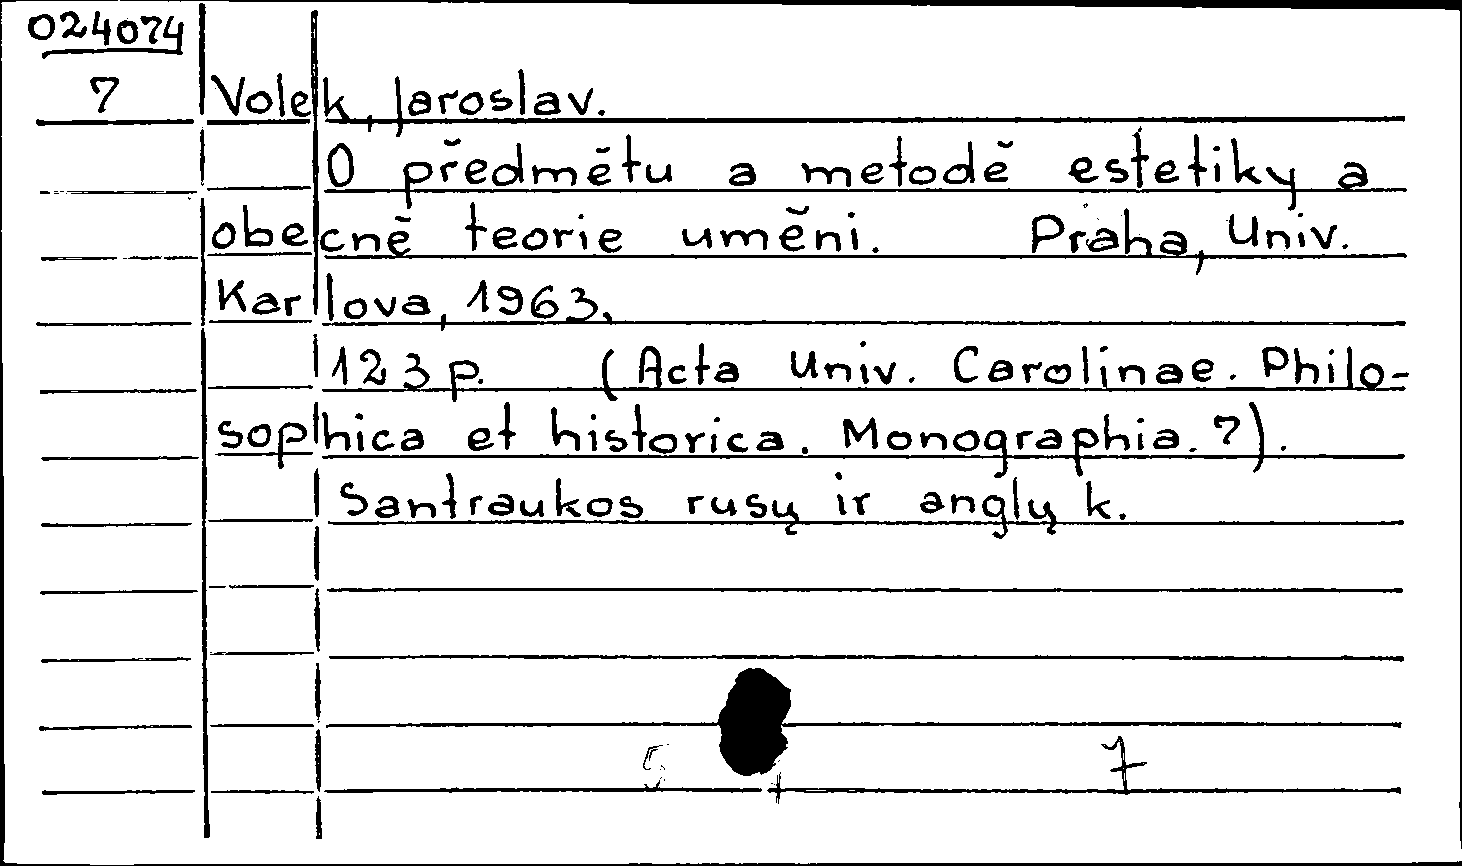 024074
7 Volek, Jaroslav.
O předmětu a metodě estetiky a
obecné teorie uměni. Praha, Univ.
Karlova, 1963.
123 p. (Acta Univ. Carolinae. Philo-
sophica et historica. Monographia. 7).
Santraukos rusų ir anglų k.
7